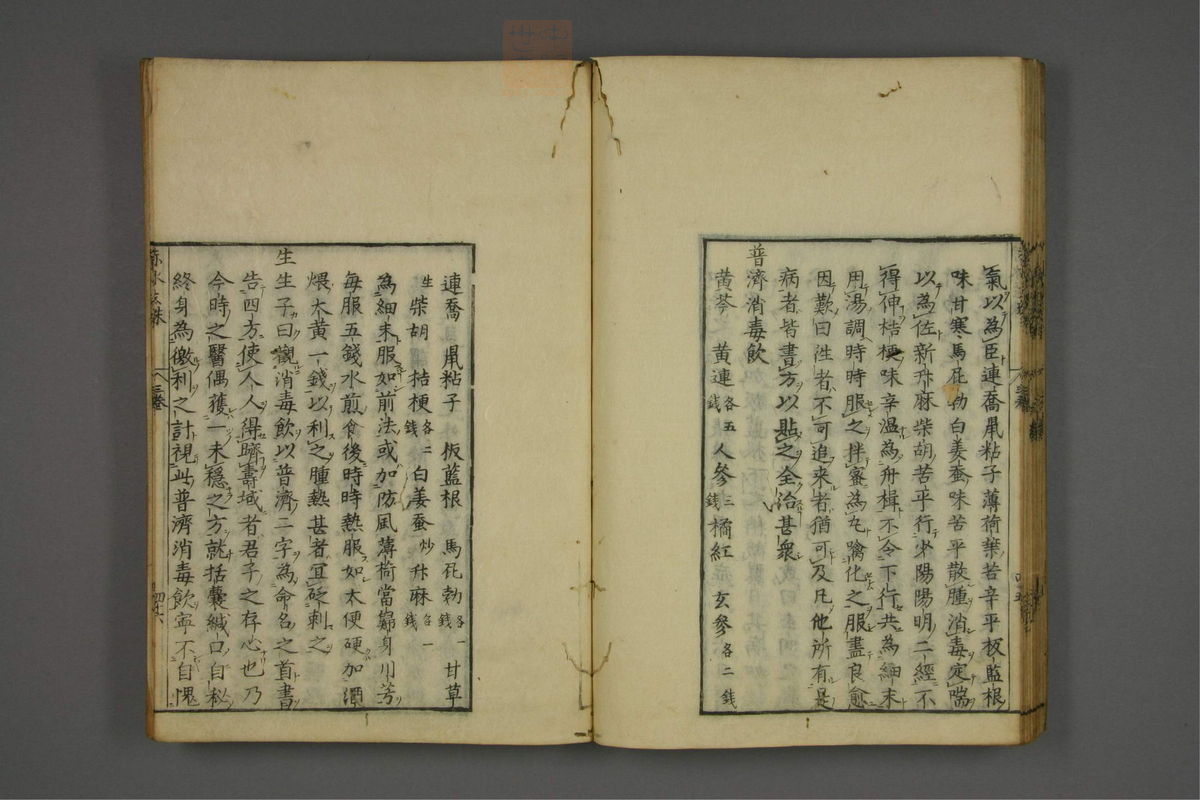 氣以為臣連喬鼠粘子薄荷葉苦辛平板藍根
味甘寒馬屁勃白姜蚕味苦平散腫消毒定喘
以為佐新升麻柴胡苦平行少陽陽明二經不
得伸桔梗味辛温為舟楫不令下行共為細末
用湯調時時服之拌蜜為丸噙化之服盡良愈
因歎曰徃者不可追来者猶可及凡他所有是
病者皆書方以貼之全治甚衆
普濟消毒飲
黄芩 黄連各五錢 人參三錢 橘紅 玄參各二錢
連喬 鼠粘子 板藍根 馬屁勃各一錢 甘草
生 柴胡 桔梗各二錢 白姜蚕炒 升麻各一錢
為細末服如前法或加防風薄荷當歸身川芎
每服五錢水煎食後時時熱服如大便硬加酒
煨大黄一錢以利之腫熱甚者宜砭刺之
生生子曰觀消毒飲以普濟二字為命名之首書
告四方使人人得躋壽域者君子之存心也乃
今時之醫偶獲一未穩之方就括囊緘口自松
終身為徼利之計視此普濟消毒飲寧不自愧
赤水玄珠 三卷 四十六